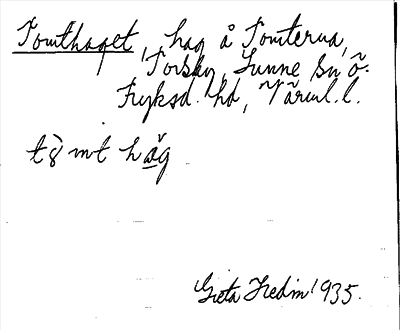 Tomthaget, hag å Tomterna,
Torsby, Sunne sn ö.
Fryksd. hd, Värml. l.
hag
Greta Hedin 1935.